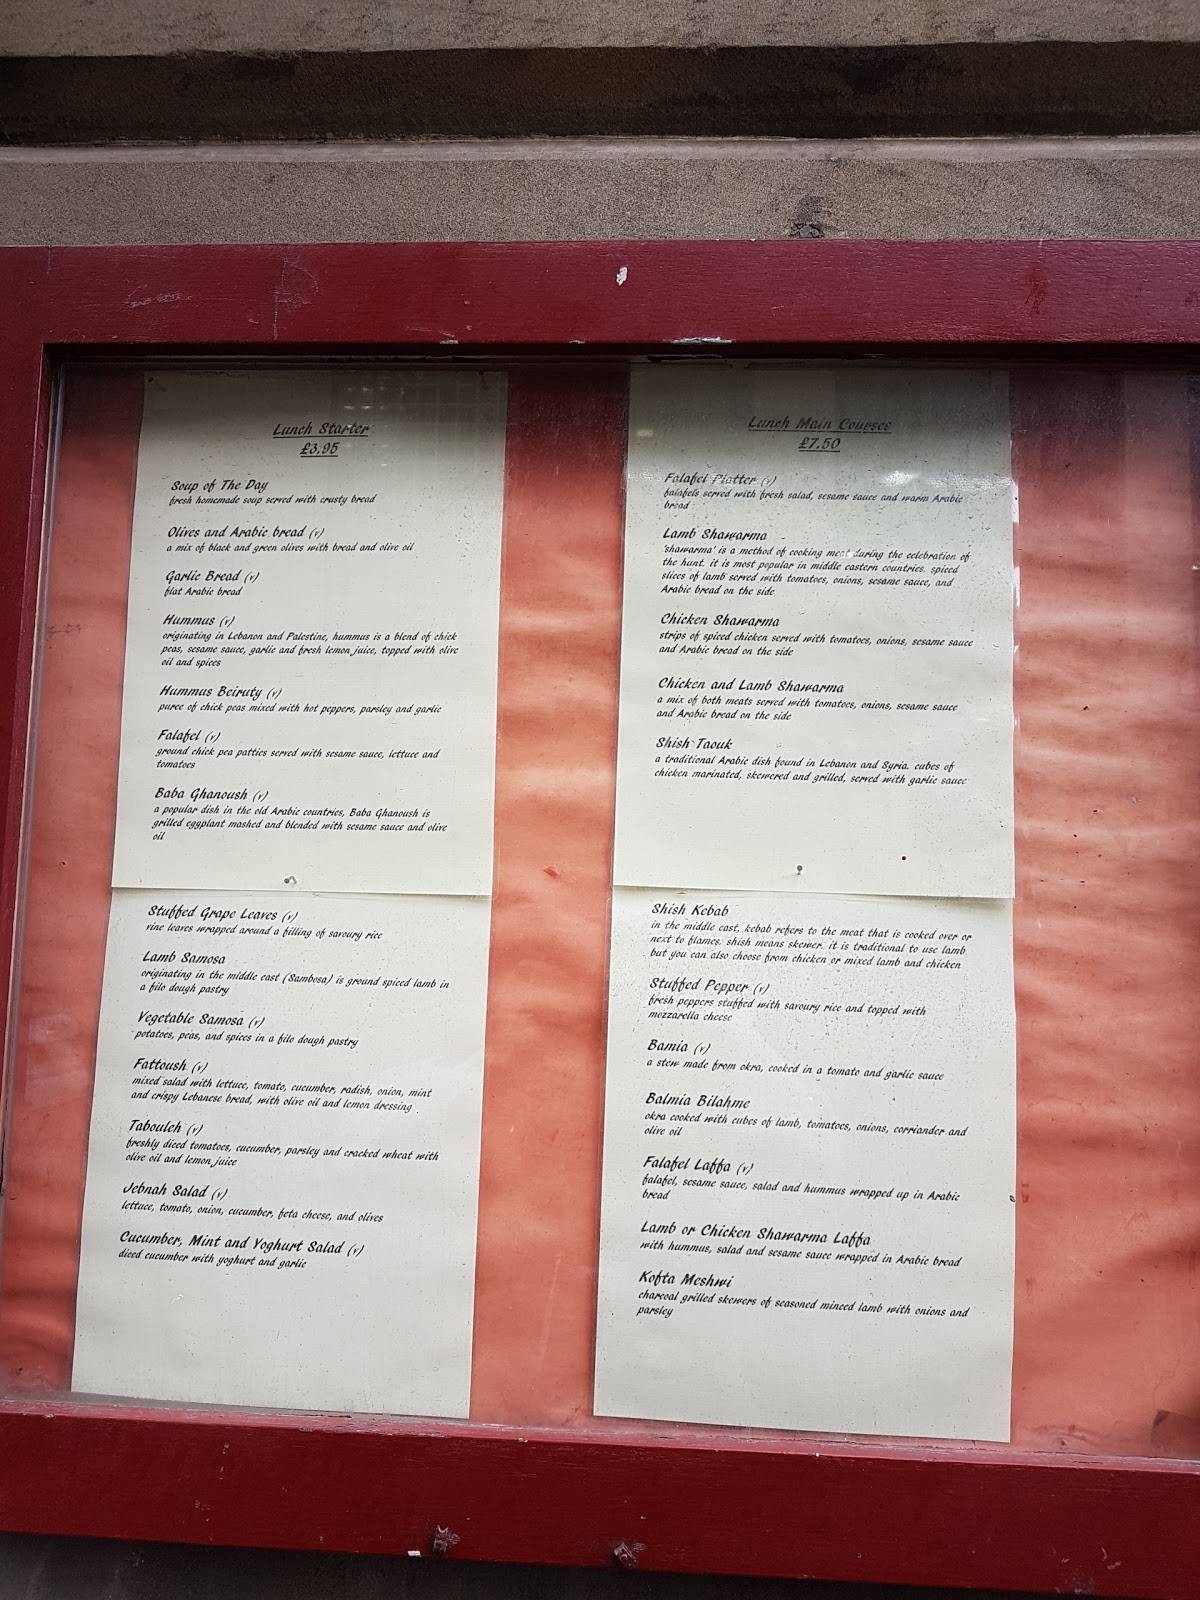 Lunch Starter
£3.95
Soup of The Day
fresh homemade soup served with crusty bread
Olives and Arabic bread (v)
a mix of black and green olives with bread and olive oil
Garlic Bread (v)
flat Arabic bread
Hummus (v)
originating in Lebanon and Palestine, hummus is a blend of chick
peas, sesame sauce, garlic and fresh lemon juice, topped with olive
oil and spices
Hummus Beiruty (v)
puree of chick peas mixed with hot peppers, parsley and garlic
Falafel (v)
ground chick pea patties served with sesame sauce, lettuce and
tomatoes
Baba Ghanoush (v)
a popular dish in the old Arabic countries, Baba Ghanoush is
grilled eggplant mashed and blended with sesame sauce and olive
oil
Stuffed Grape Leaves (v)
vine leaves wrapped around a filling of savoury rice
Lamb Samosa
originating in the middle east (Sambosa) is ground spiced lamb in
a filo dough pastry
Vegetable Samosa (v)
potatoes, peas, and spices in a filo dough pastry
Fattoush (v)
mixed salad with lettuce, tomato, cucumber, radish, onion, mint
and crispy Lebanese bread, with olive oil and lemon dressing
Tabouleh (v)
freshly diced tomatoes, cucumber, parsley and cracked wheat with
olive oil and lemon juice
Jebnah Salad (v)
lettuce, tomato, onion, cucumber, feta cheese, and olives
Cucumber, Mint and Yoghurt Salad (v)
diced cucumber with yoghurt and garlic
Lunch Main Courses
£7.50
Falafel Platter (v)
falafels served with fresh salad, sesame sauce and warm Arabic
bread
Lamb Shawarma
'shawarma' is a method of cooking meat during the celebration of
the hunt. it is most popular in middle eastern countries. spiced
slices of lamb served with tomatoes, onions, sesame sauce, and
Arabic bread on the side
Chicken Shawarma
strips of spiced chicken served with tomatoes, onions, sesame sauce
and Arabic bread on the side
Chicken and Lamb Shawarma
a mix of both meats served with tomatoes, onions, sesame sauce
and Arabic bread on the side
Shish Taouk
a traditional Arabic dish found in Lebanon and Syria. cubes of
chicken marinated, skewered and grilled, served with garlic sauce
Shish Kebab
in the middle east, kebab refers to the meat that is cooked over or
next to flames. shish means skewer. it is traditional to use lamb
but you can also choose from chicken or mixed lamb and chicken
Stuffed Pepper (v)
fresh peppers stuffed with savoury rice and topped with
mozzarella cheese
Bamia (v)
a stew made from okra, cooked in a tomato and garlic sauce
Balmia Bilahme
okra cooked with cubes of lamb, tomatoes, onions, corriander and
olive oil
Falafel Laffa (v)
falafel, sesame sauce, salad and hummus wrapped up in Arabic
bread
Lamb or Chicken Shawarma Laffa
with hummus, salad and sesame sauce wrapped in Arabic bread
Kofta Meshwi
charcoal grilled skewers of seasoned minced lamb with onions and
parsley